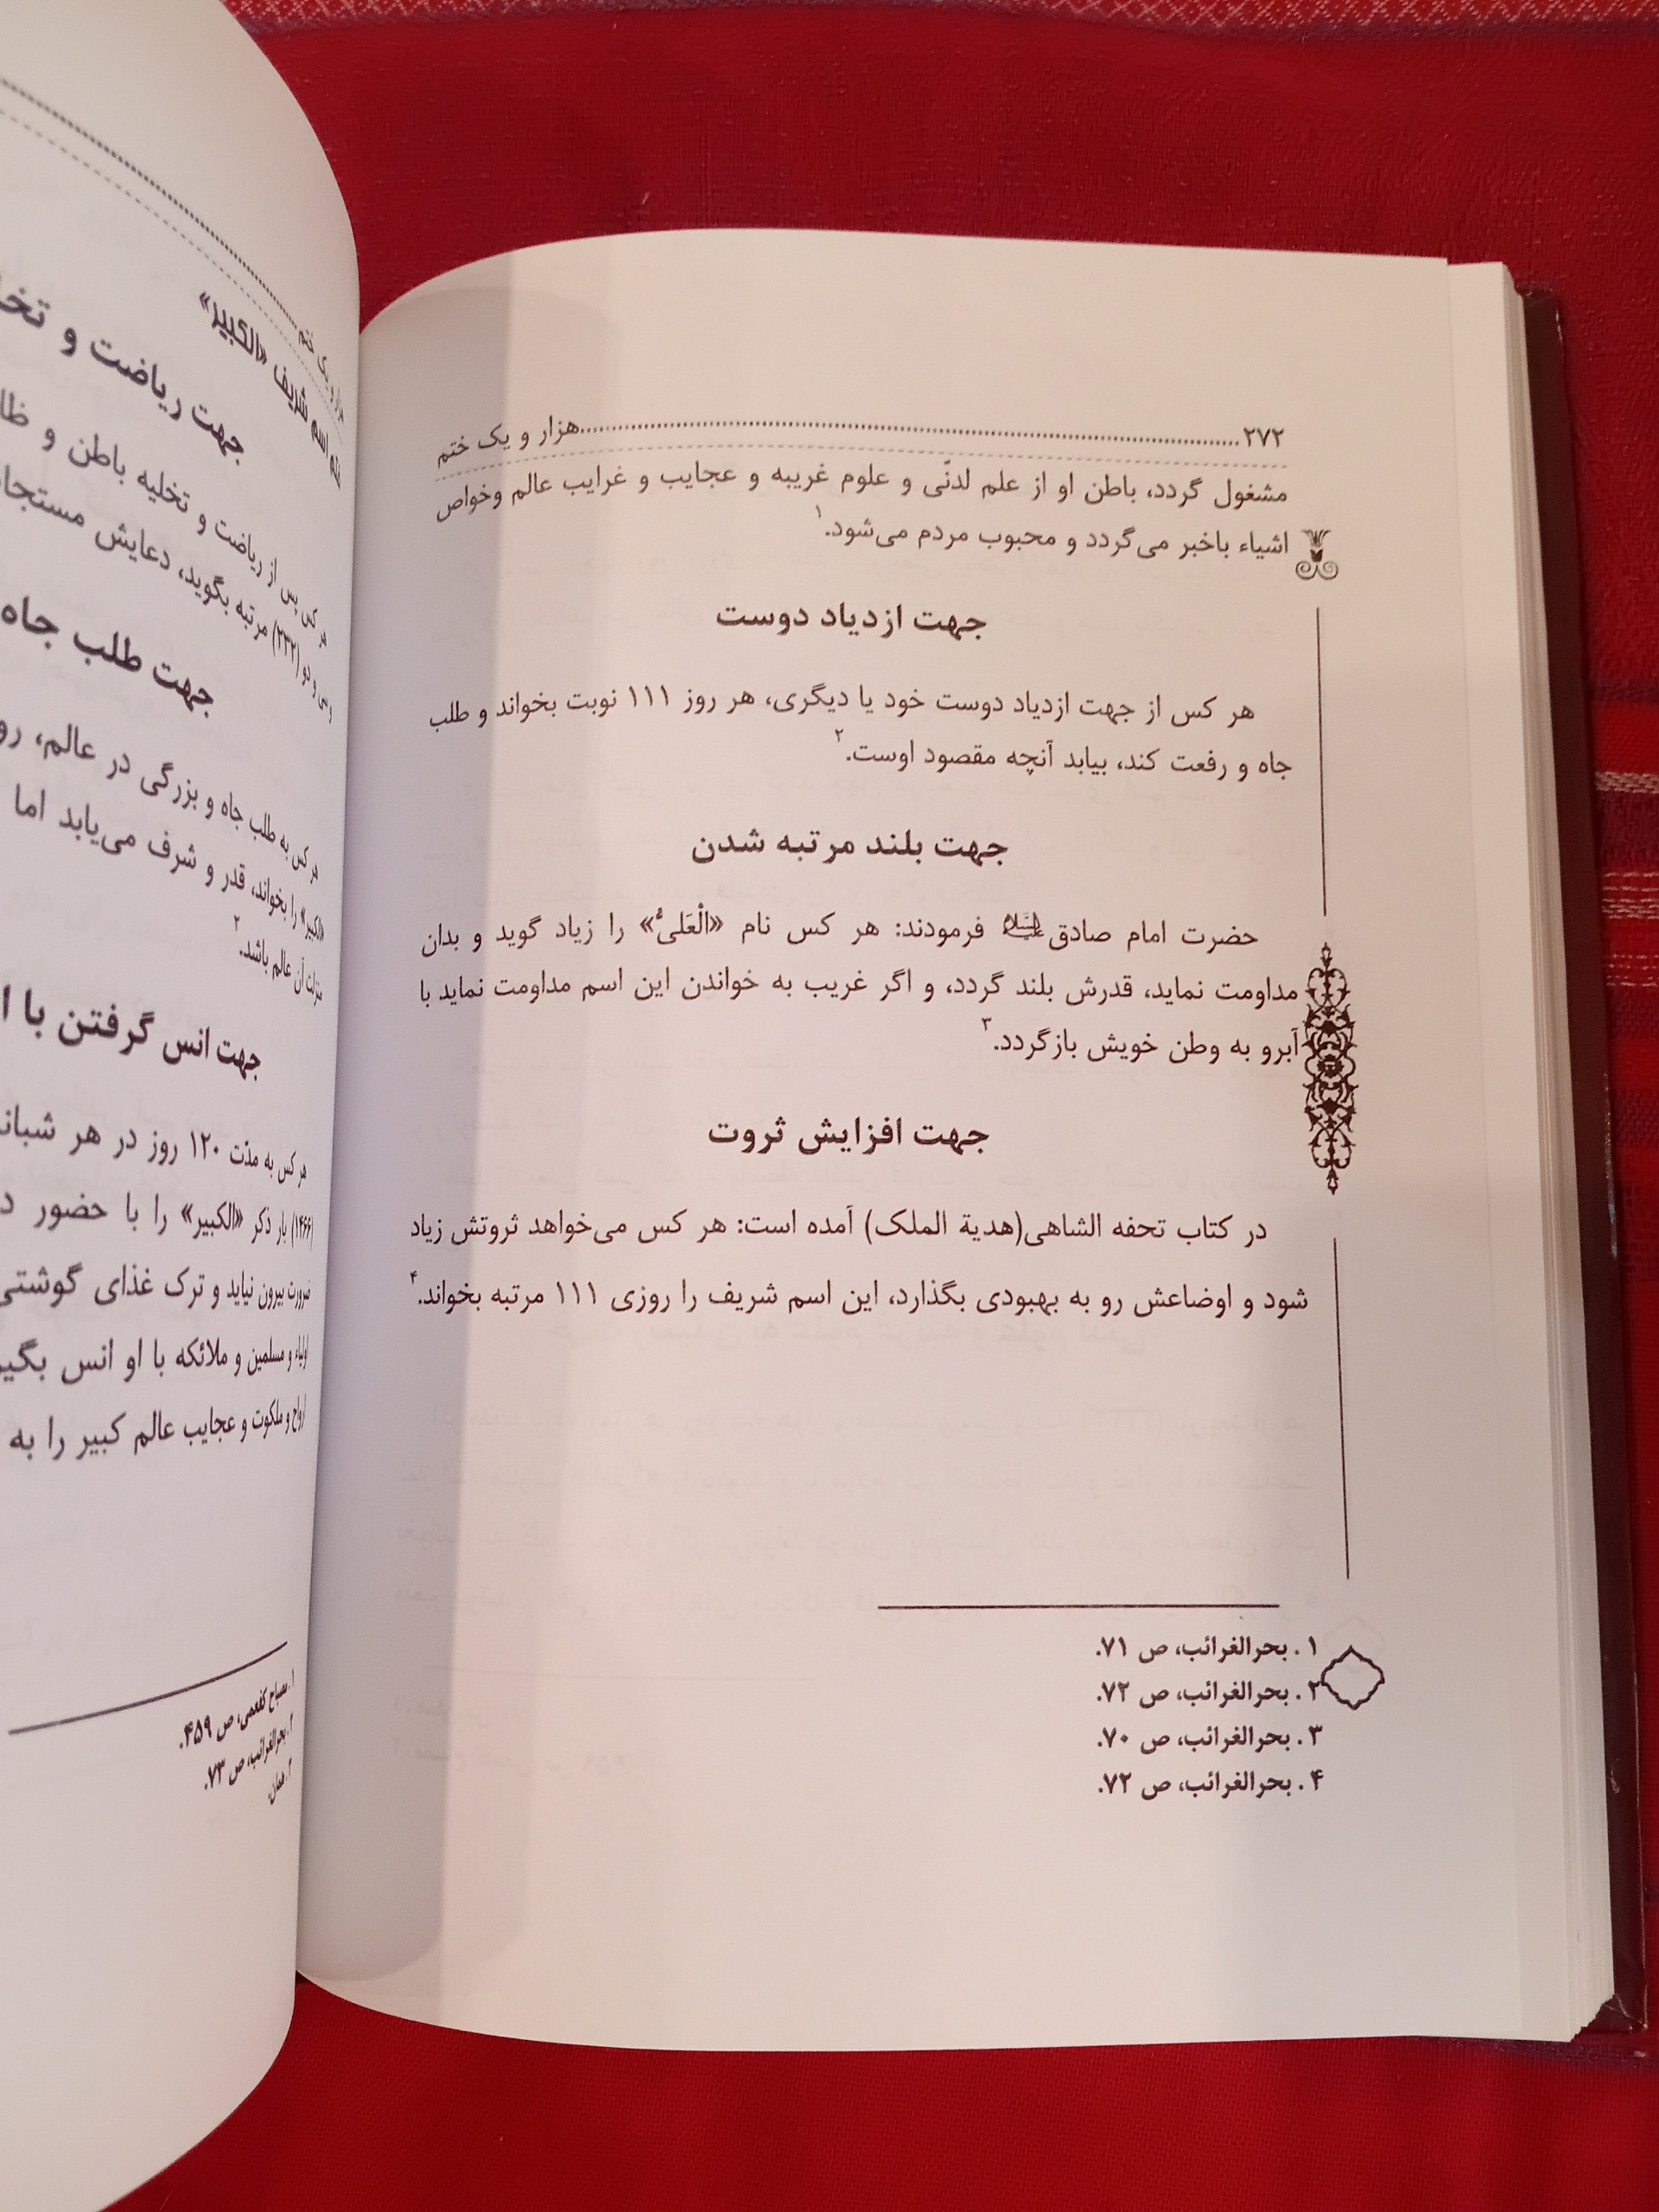 ۲۷۲ هزار و یک ختم
مشغول گردد، باطن او از علم لدنّی و علوم غریبه و عجایب و غرایب عالم وخواص
اشیاء باخبر می‌گردد و محبوب مردم می‌شود.۱
جهت ازدیاد دوست
هر کس از جهت ازدیاد دوست خود یا دیگری، هر روز ۱۱۱ نوبت بخواند و طلب
جاه و رفعت کند، بیابد آنچه مقصود اوست.۲
جهت بلند مرتبه شدن
حضرت امام صادق علیه السلام فرمودند: هر کس نام «الْعَلیُّ» را زیاد گوید و بدان
مداومت نماید، قدرش بلند گردد، و اگر غریب به خواندن این اسم مداومت نماید با
آبرو به وطن خویش بازگردد.۳
جهت افزایش ثروت
در کتاب تحفه الشاهی(هدیة الملک) آمده است: هر کس می‌خواهد ثروتش زیاد
شود و اوضاعش رو به بهبودی بگذارد، این اسم شریف را روزی ۱۱۱ مرتبه بخواند.۴
۱. بحرالغرائب، ص ۷۱.
۲. بحرالغرائب، ص ۷۲.
۳. بحرالغرائب، ص ۷۰.
۴. بحرالغرائب، ص ۷۲.
ختم اسم شریف «الکبیر»
جهت ریاضت و
هر کس پس از ریاضت و تخلیه باطن و
سی و دو (۲۳۲) مرتبه بگوید، دعایش
جهت طلب جاه
هر کس به طلب جاه و بزرگی در عالم،
«الکبیر» را بخواند، قدر و شرف می‌یابد اما
منزلت آن عالم باشد.۲
جهت انس گرفتن با
هر کس به مدّت ۱۲۰ روز در هر
(۱۴۶۶) بار ذکر «الکبیر» را با حضور
ضرورت بیرون نیاید و ترک غذای گوشتی
اولیاء و مسلمین و ملائکه با او انس
ارواح و ملکوت و عجایب عالم کبیر را به
۱. مصباح کفعمی، ص ۴۵۹.
۲. بحرالغرائب، ص ۷۳.
۳. همان.